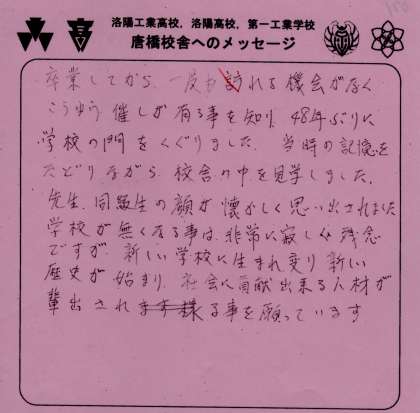 150
洛陽工業高校、洛陽高校、第一工業学校
唐橋校舎へのメッセージ
卒業してから、一度も訪れる機会がなく
こうゆう催しが有る事を知り、48年ぶりに
学校の門をくぐりました。当時の記憶を
たどりながら、校舎の中を見学しました。
先生、同級生の顔が懐かしく思い出されました
学校が無くなる事は、非常に寂しく残念
ですが、新しい学校に生まれ変り新しい
歴史が始まり、社会に貢献出来る人材が
輩出される事を願っています